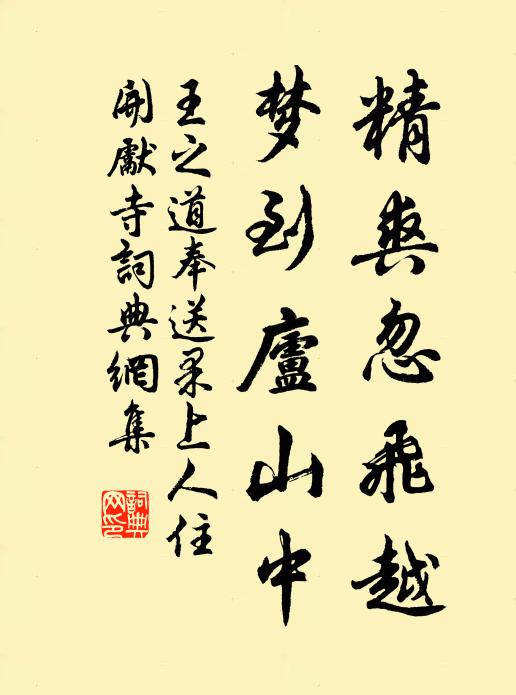 精爽忽飛越
梦到廬山中
王之道奉送果上人住
開獻寺詞典網集
詞典
网印